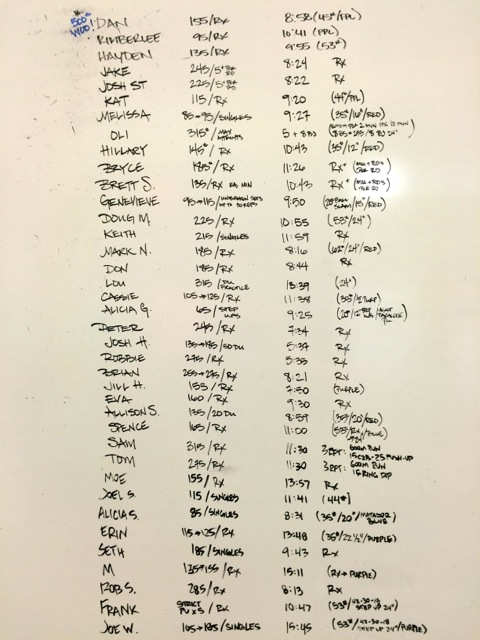 500th WOD!
DAN 155/RX 8:58 (45#/PPL)
KIMBERLEE 95/RX 10:41 (PPL)
HAYDEN 135/RX 9:55 (53#)
JAKE 245/5 8:24 RX
JOSH ST 225/5 8:22 RX
KAT 115/RX 9:20
MELISSA 85→95/SINGLES 9:27 (35#/16"/RED)
OLI 315# / MAX ATTEMPTS 5 + 8 BJ
HILLARY 145#/RX 10:43 (35#/12"/RED)
BRYCE 185#/RX 11:26 RX+
BRETT S. 135/RX EA. MIN 10:43 RX+
GENEVIEVE 95→115/UNBROKEN SETS 9:50
DOUG M. 225/RX 10:55 (55#/24")
KEITH 215/SINGLES 11:59 RX
MARK N. 185/RX 8:16 (62#/24"/RED)
DON 185/RX 8:44 RX
LOU 315/DU PRACTICE 13:39 (24")
CASSIE 105→125/RX 11:38
ALICIA G. 65/STEP UPS 9:25
PETER 245/RX 7:34 RX
JOSH H. 135→185/50 DU 5:37 RX
ROBBIE 275/RX 5:35 RX
BRIAN 255→275/RX 8:21 RX
JILL H. 155/RX 7:50 (PURPLE)
EVA 160/RX 9:30 RX
ALLISON S. 135/20 DU 8:59 (35#/20"/RED)
SPENCE 165/RX 11:00
SAM 315/RX 11:30 3 RFT: 600M RUN 15 C2B - 25 PUSH-UP
TOM 275/RX 11:30 3 RFT: 600M RUN 15 RING DIP
MOE 155/RX 13:57 RX
JOEL S. 115/SINGLES 11:41 (44#)
ALICIA S. 85/SINGLES 8:31 (35#/20"/MATADOR BLUE)
ERIN 115→125/RX 13:48 (35#/22½"/PURPLE)
SETH 185/SINGLES 9:43 RX
M 135→155/RX 15:11 (RX→PURPLE)
ROB S. 285/RX 8:13 RX
FRANK STRICT PU x 5/RX 10:47 (53#/42-30-18 STEP UP 24")
JOE W. 165→185/SINGLES 15:45 (53#/42-30-18 STEP UP 24"/PURPLE)